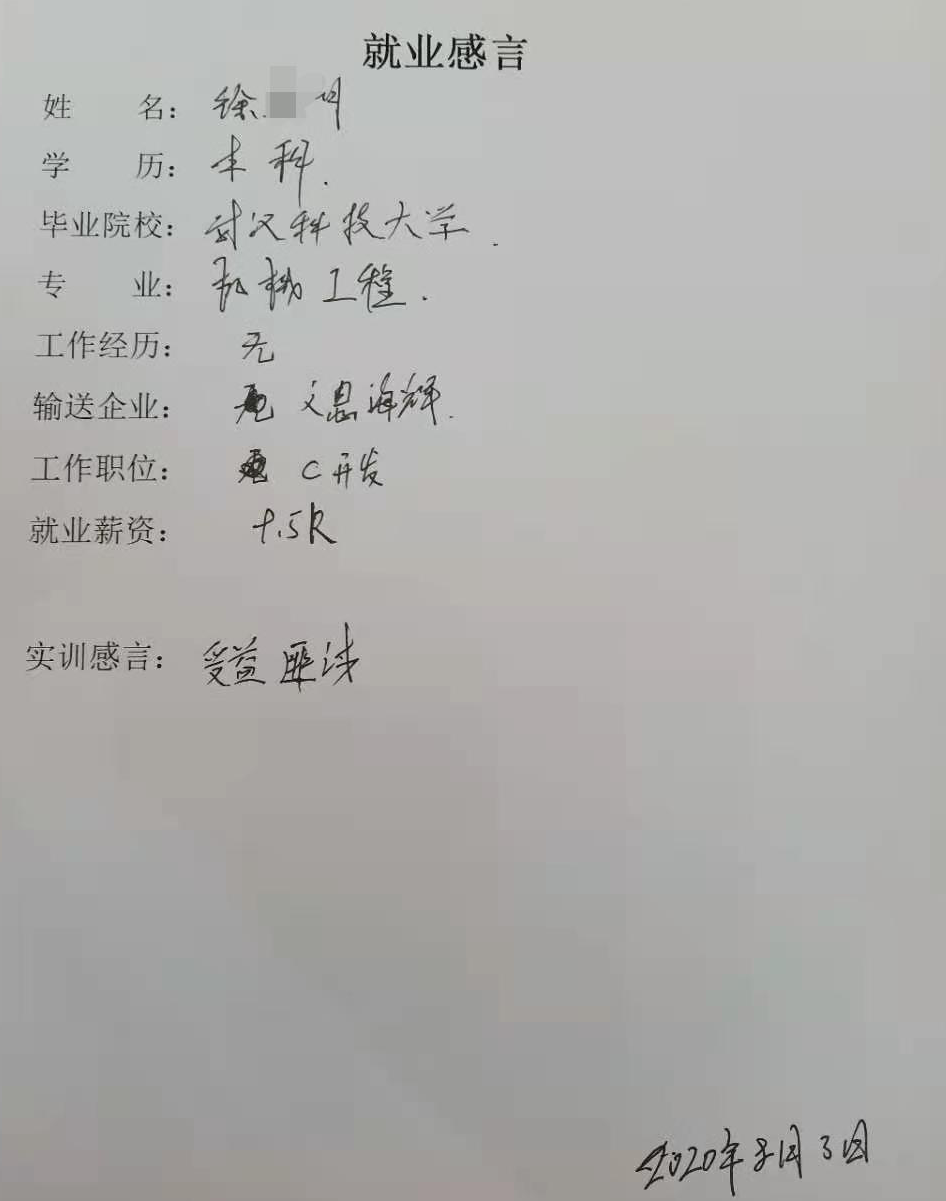 就业感言
姓 名：徐
学 历：本科.
毕业院校：武汉科技大学.
专 业：机械工程.
工作经历：无
输送企业：文思海辉.
工作职位：C开发
就业薪资：
实训感言：受益匪浅
2020年8月3日